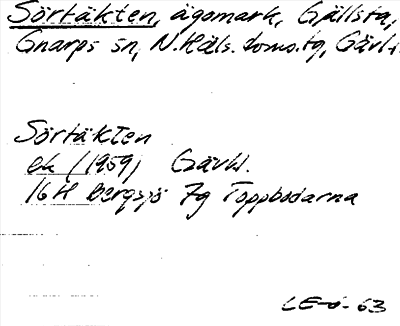 Sörtäkten, ägomark, Gällsta,
Gnarps sn, N. Häls. doms.tg, Gävl.
Sörtäkten
ek (1959) Gävbl.
16H Bergsjö 7g Toppbodarna
LE-ö-63